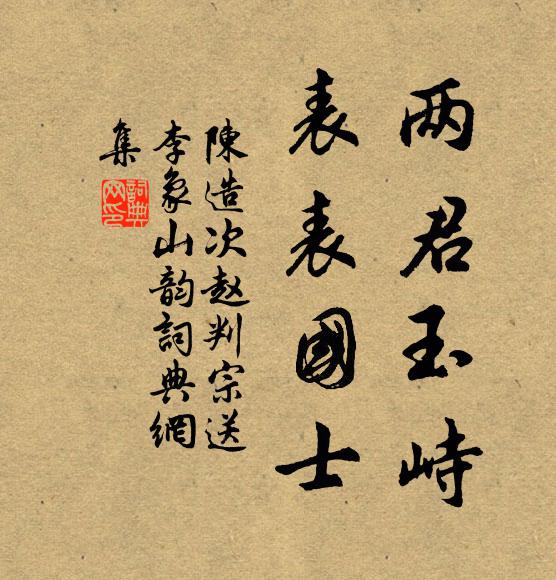 两君玉峙
表表國士
陳造次赵判宗送
李象山韵詞典網
集
詞典网印